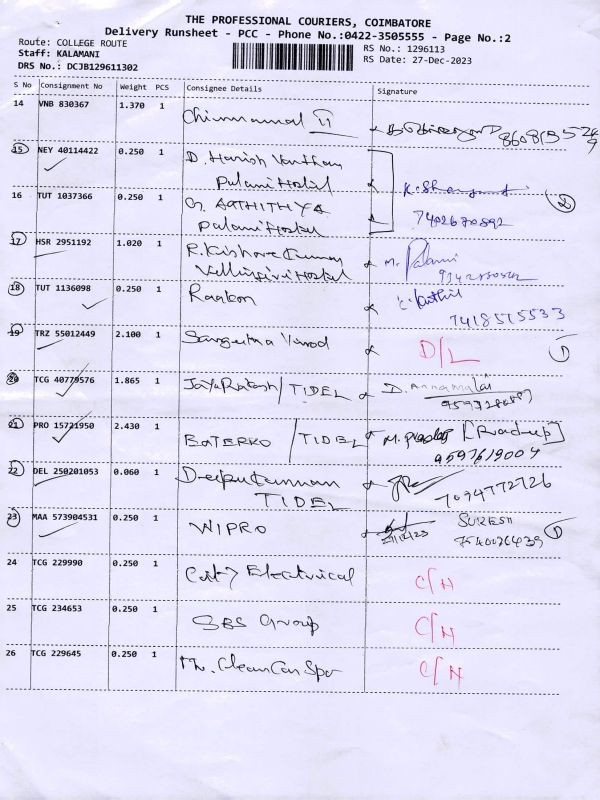 THE PROFESSIONAL COURIERS, COIMBATORE
Delivery Runsheet - PCC - Phone No.:0422-3505555 - Page No.:2
Route: COLLEGE ROUTE
Staff: KALAMANI
DRS No.: DCJB129611302
RS No.: 1296113
RS Date: 27-Dec-2023
S No Consignment No Weight PCS Consignee Details Signature
14 VNB 830367 1.370 1 Chinnamal
15 NEY 40114422 0.250 1 D. Harish
Palani Hostel
16 TUT 1037366 0.250 1 G. AATHITHYA
Palani Hostel 7402670892
17 HSR 2951192 1.020 1 R. Kishore Kumar M. Palani
Hostel
18 TUT 1136098 0.250 1
7418515533
19 TRZ 55012449 2.100 1 Sangeetha D/L 1
20 TCG 40779576 1.865 1 JayaPrakash / TIDEL D. Annamalai
21 PRO 15721950 2.430 1 BOTERKO / TIDEL M. [Pradeep]
9597619004
22 DEL 250201053 0.060 1
TIDEL
23 MAA 573904531 0.250 1 WIPRO SURESH
24 TCG 229990 0.250 1 City Electrical C/H
25 TCG 234653 0.250 1 SBS Group C/H
26 TCG 229645 0.250 1 Clean Car Spa C/H